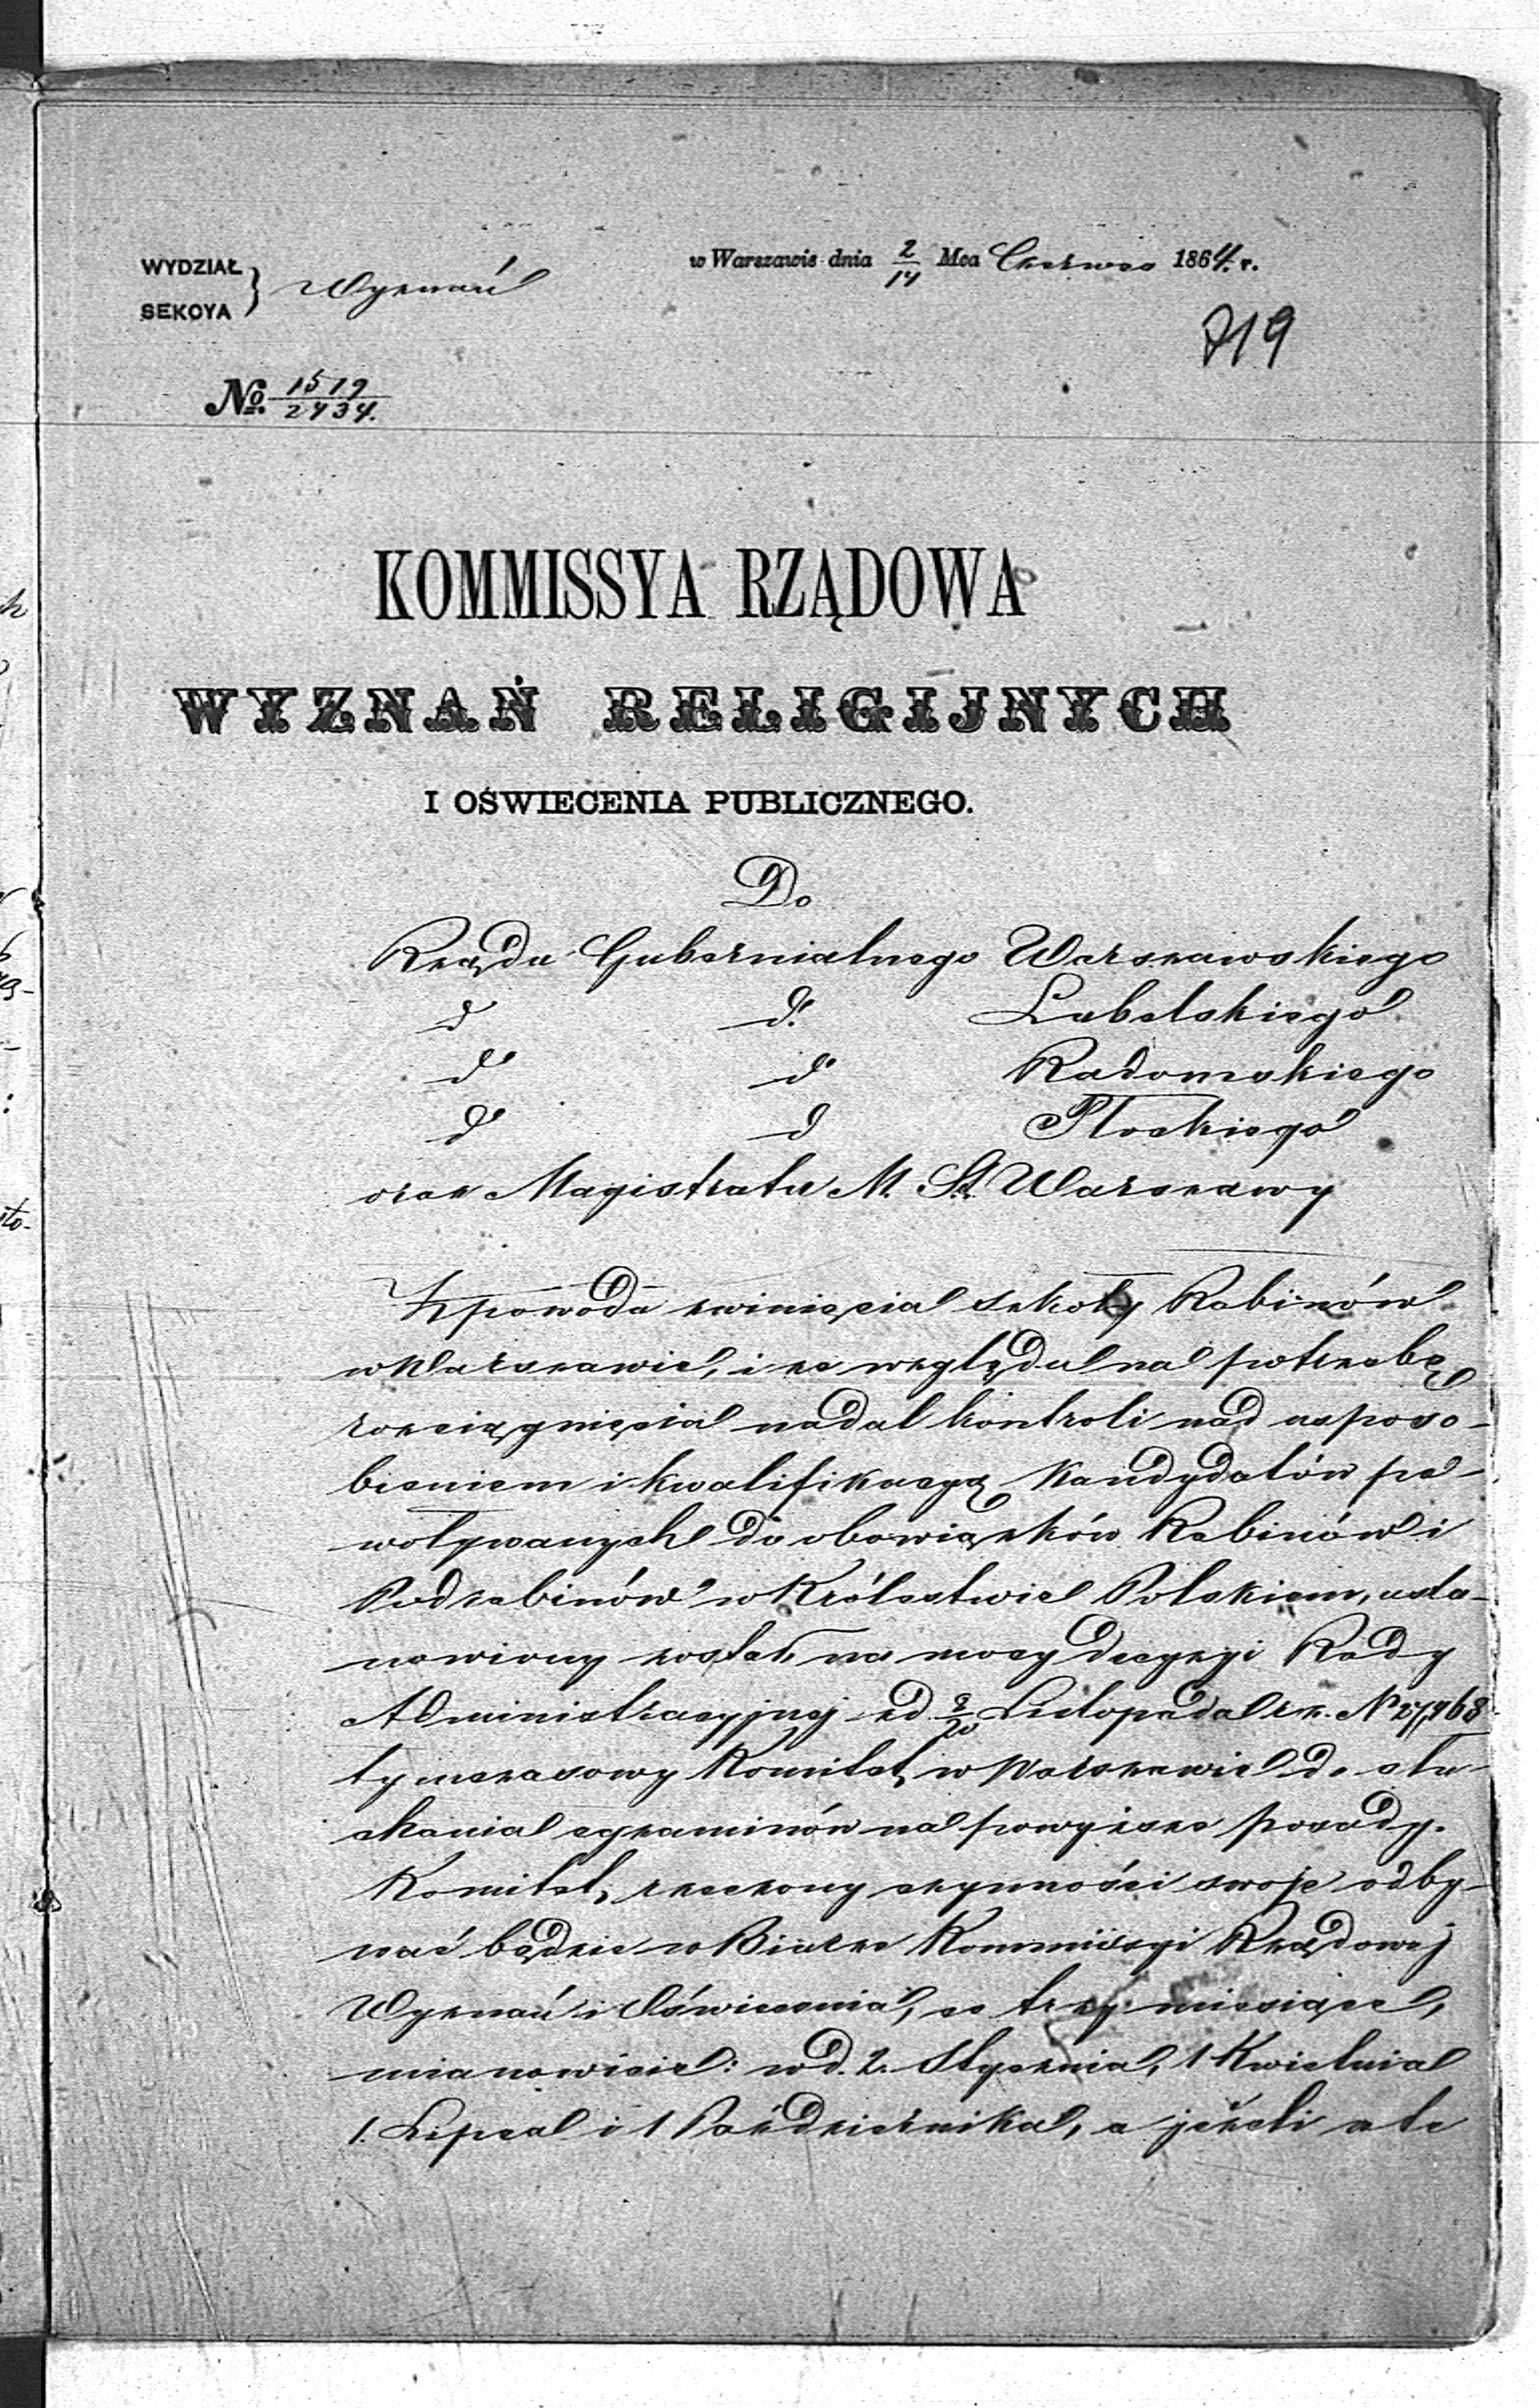 WYDZIAŁ
SEKCYA } Wyznań
w Warszawie dnia 2/14 Mca Czerwca 1864. r.
719
No. 1519/2434.
KOMMISSYA RZĄDOWA
WYZNAŃ RELIGIJNYCH
I OŚWIECENIA PUBLICZNEGO.
Do
Rządu Gubernialnego Warszawskiego
d° d° Lubelskiego
d° d° Radomskiego
d° d° Płockiego
oraz Magistratu M. St. Warszawy
Z powodu zwinięcia szkoły Rabinów
w Warszawie, i ze względu na potrzebę
rozciągnięcia nadal kontroli nad usposo-
bieniem i kwalifikacyą Kandydatów po-
woływanych do obowiązków Rabinów i
Podrabinów w Królestwie Polskiem, usta-
nowiony został na mocy decyzyi Rady
Administracyjnej z d. 8/20 Listopada r.z. No
tymczasowy Komitet w Warszawie do słu-
chania egzaminów na powyższe posady.
Komitet rzeczony czynności swoje odby-
wać będzie w Biurze Kommissyi Rządowej
Wyznań i Oświecenia, co trzy miesiące,
mianowicie: w d. 2. Stycznia, 1 Kwietnia
1. Lipca i 1 Października, a jeżeli w te